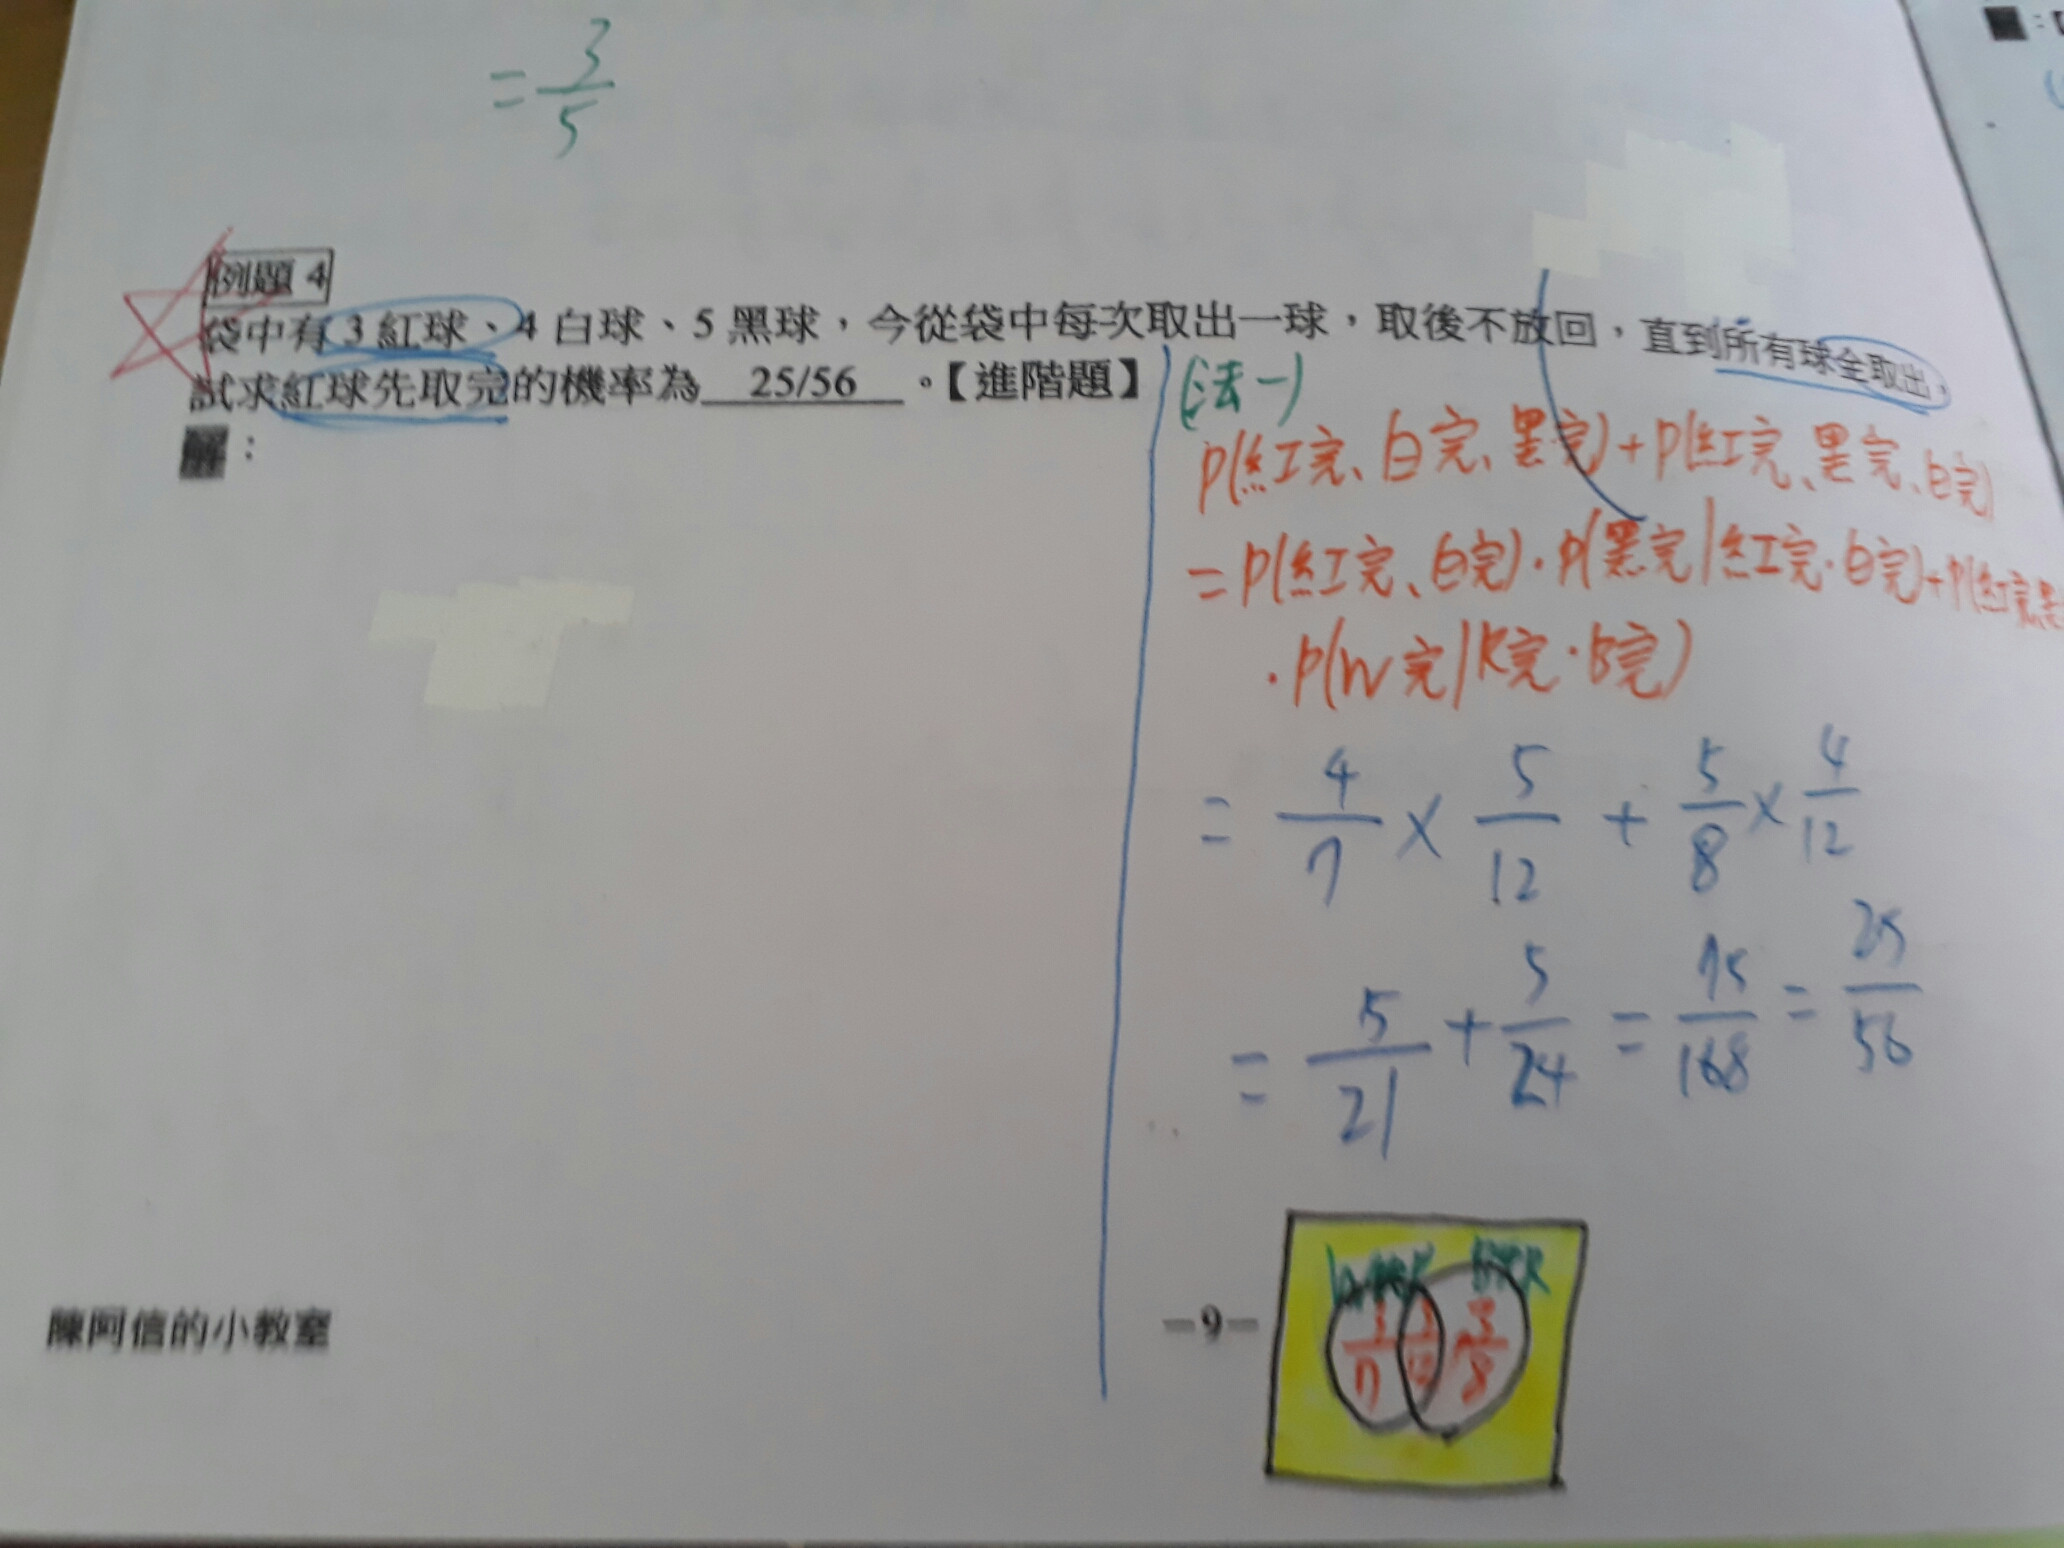 = 3/5
例題 4
袋中有 3 紅球、4 白球、5 黑球，今從袋中每次取出一球，取後不放回，直到所有球全取出，
試求紅球先取完的機率為 25/56 。【進階題】
解：
(法一)
P(紅完、白完、黑完)+P(紅完、黑完、白完)
=P(紅完、白完)·P(黑完|紅完·白完)+P(紅完黑
·P(W完|R完·B完)
= 4/7 × 5/12 + 5/8 × 4/12
= 5/21 + 5/24 = 75/168 = 25/56
3/7 3/12 3/8
陳阿信的小教室
－9－